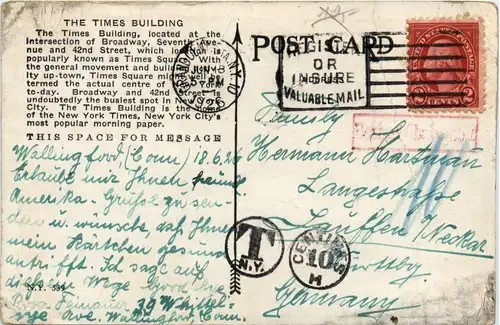 THE TIMES BUILDING
The Times Building, located at the
Intersection of Broadway, Seventh Ave-
nue and 42nd Street, which location is
popularly known as Times Square. With
the general movement and build
ity up-town, Times Square might well be
termed the actual centre of New York
to-day. Broadway and 42nd Street is
undoubtedly the busiest spot in New York
City. The Times Building is the home
of the New York Times, New York City's
most popular morning paper.
THIS SPACE FOR MESSAGE
Wallingford, (Conn) 18.6.26
Erlaube mir Ihnen
Amerika-Grüße zu sen-
den u. wünsche, daß Ihnen
mein Kärtchen gesund
antrifft. Ich sage auf
diesem Wege Good bye
39 Whittel-
sye Ave. Wallingford, Conn.
N.Y. 339
POST CARD
REGISTER
OR
INSURE
VALUABLE MAIL
N.Y.
1926
UNITED STATES POSTAGE
2 CENTS 2
Family
Hermann Hartman
Langestraße
Lauffen a/Neckar
Germany
T
N.Y.
CENTIMES
10
M